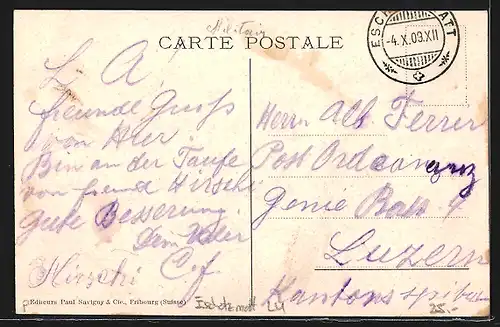 Militär
CARTE POSTALE
ESCH ATT
-4.X.09.XII
L A
freunde Gruss
von Hier.
Bin an der Taufe
von freund Hirschi
Gute Besserung.
Dein
Hirschi
Herrn Alb Ferrer
Post Ordonanz
Genie Bat. 4
Luzern
Kantonsspital
Editeurs Paul Savigny & Cie., Fribourg (Suisse)
25.-